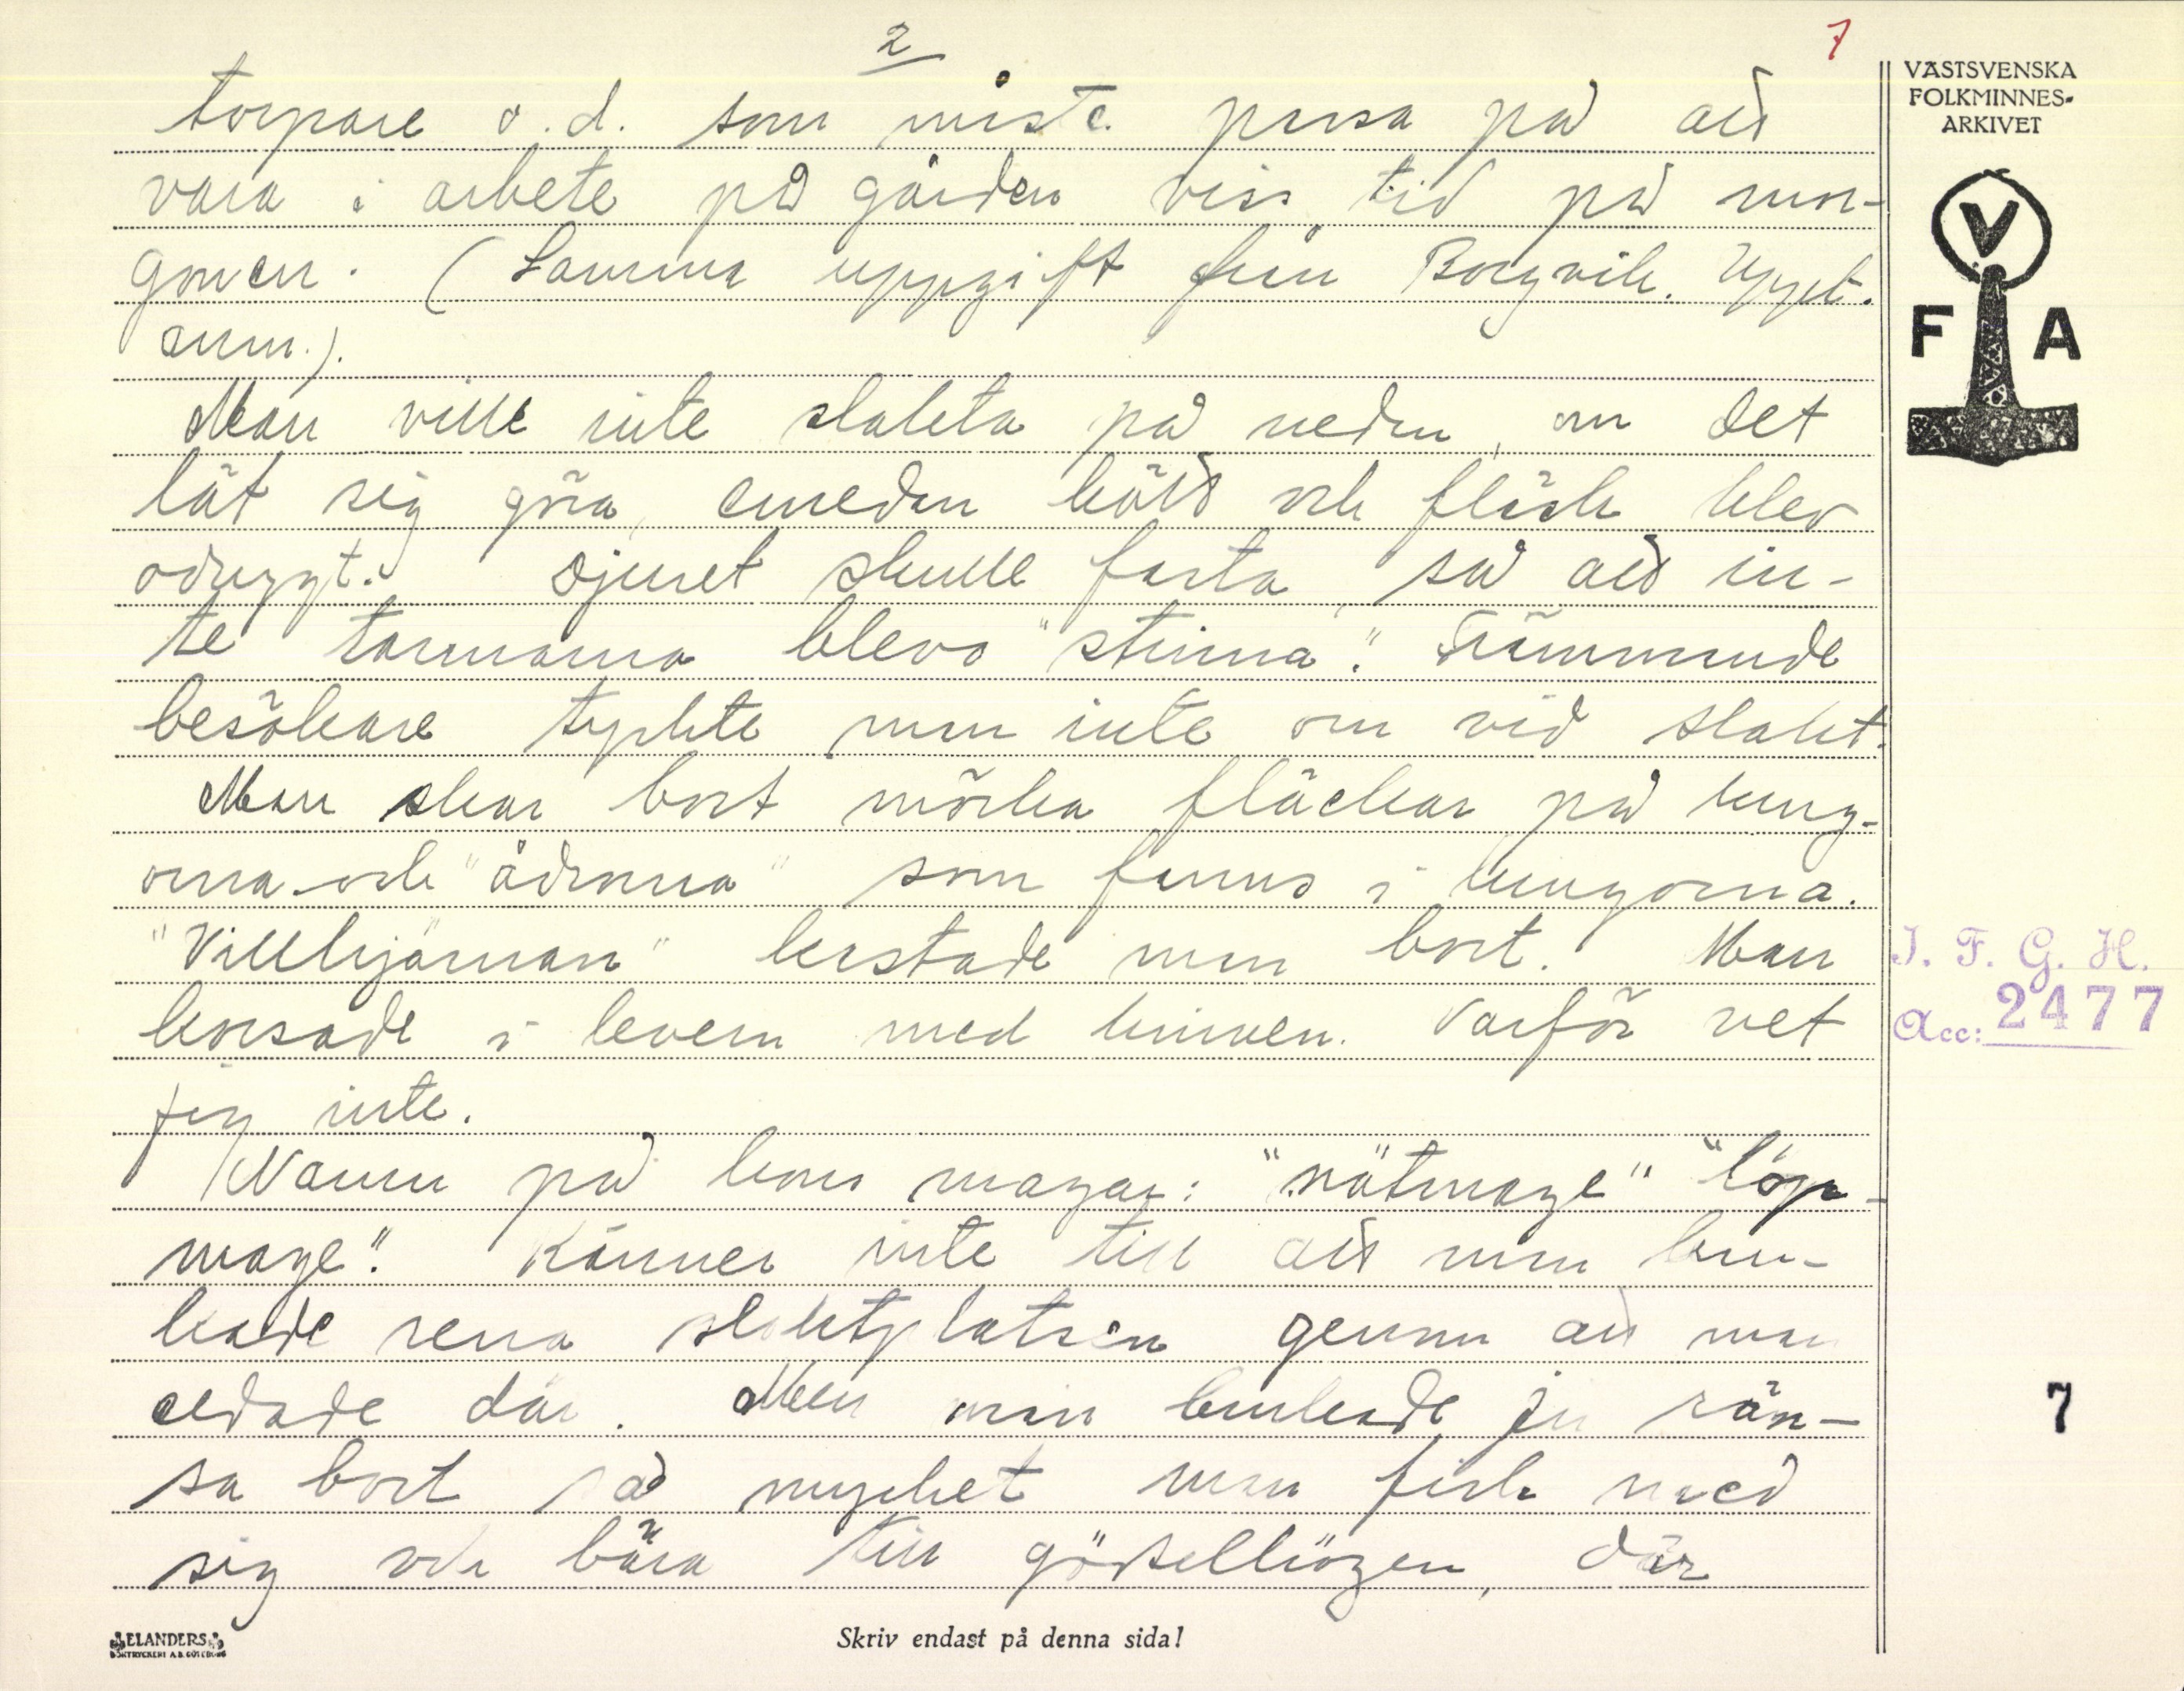 2
7
torpare o.d. som måste passa på att
vara i arbete på gården viss tid på mor-
gonen. (Samma uppgift från Borgvik. Uppt.
anm.).
Man ville inte slakta på nedan, om det
lät sig göra, emedan kött och fläsk blev
odrygt. Djuret skulle fasta, så att in-
te tarmarna blevo "stinna". Främmande
besökare tyckte man inte om vid slakt.
Man skar bort mörka fläckar på lung-
orna och "ådrorna" som finns i lungorna.
"Villhjärnan" kastade man bort. Man
korsade i levern med kniven. Varför vet
jag inte.
Namn på kons magar: "nätmage" "löp-
mage". Känner inte till att man bru-
kade rena slaktplatsen genom att man
eldade där. Men man brukade ju rän-
sa bort så mycket man fick med
sig och bära till gödselhögen, där
VÄSTSVENSKA
FOLKMINNES-
ARKIVET
V
F A
I. F. G. H.
Acc: 2477
7
ELANDERS
BOKTRYCKERI A.B. GÖTEBORG
Skriv endast på denna sida!